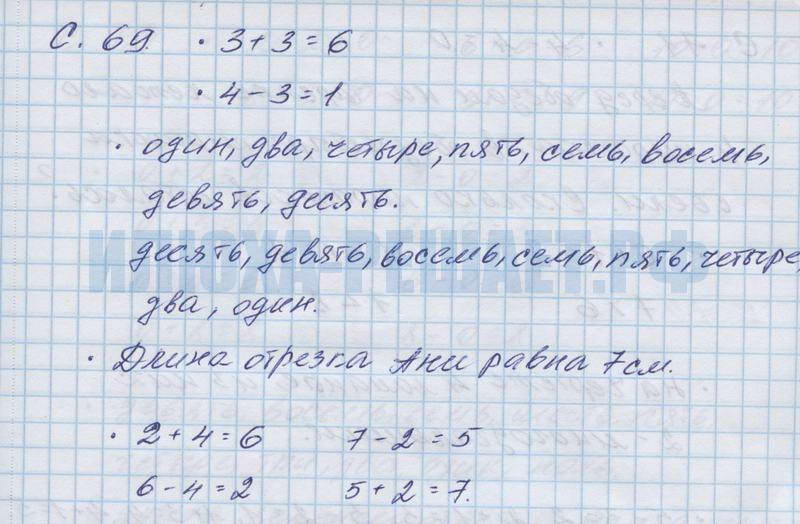 С. 69. • 3+3=6
• 4-3=1
• один, два, четыре, пять, семь, восемь,
девять, десять.
десять, девять, восемь, семь, пять, четыре,
ИЛЮХА-РЕШАЕТ.РФ
два, один.
• Длина отрезка Ани равна 7 см.
• 2+4=6 7-2=5
6-4=2 5+2=7.